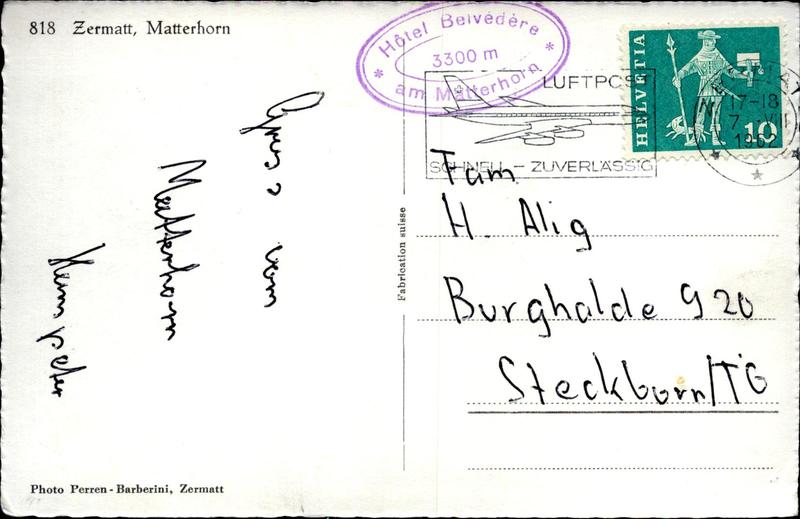 818 Zermatt, Matterhorn
Hôtel Belvédère
3300 m
am Matterhorn
LUFTPOST
SCHNELL - ZUVERLÄSSIG
HELVETIA
10
17-18
1962
Gruss vom
Matterhorn
Fabrication suisse
Fam
H. Alig
Burghalde 920
Steckborn/TG
Photo Perren-Barberini, Zermatt